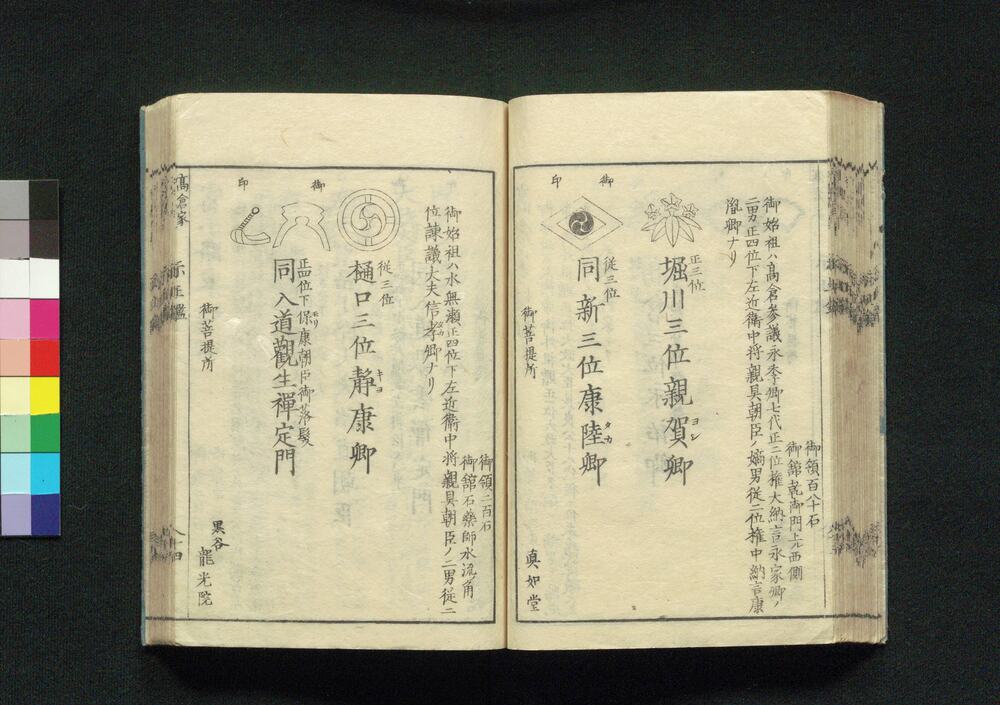 御領百八十石
御舘乾御門上ル西側
御始祖ハ高倉参議永季卿七代正二位権大納言永家卿ノ
二男正四位下左近衛中将親具朝臣ノ嫡男従二位権中納言康
胤卿ナリ
御印
正三位
堀川三位親賀卿
ヨシ
従三位
同新三位康陸卿
タカ
御菩提所
真如堂
御領二百石
御舘石薬師水流角
御始祖ハ水無瀬正四位下左近衛中将親具朝臣ノ二男従二
位諫議大夫信孝卿ナリ
タカ
御印
従三位
樋口三位静康卿
キヨ
正四位下保康朝臣御落髪
モリ
同入道観生禅定門
御菩提所
黒谷
龍光院
高倉家
八十四